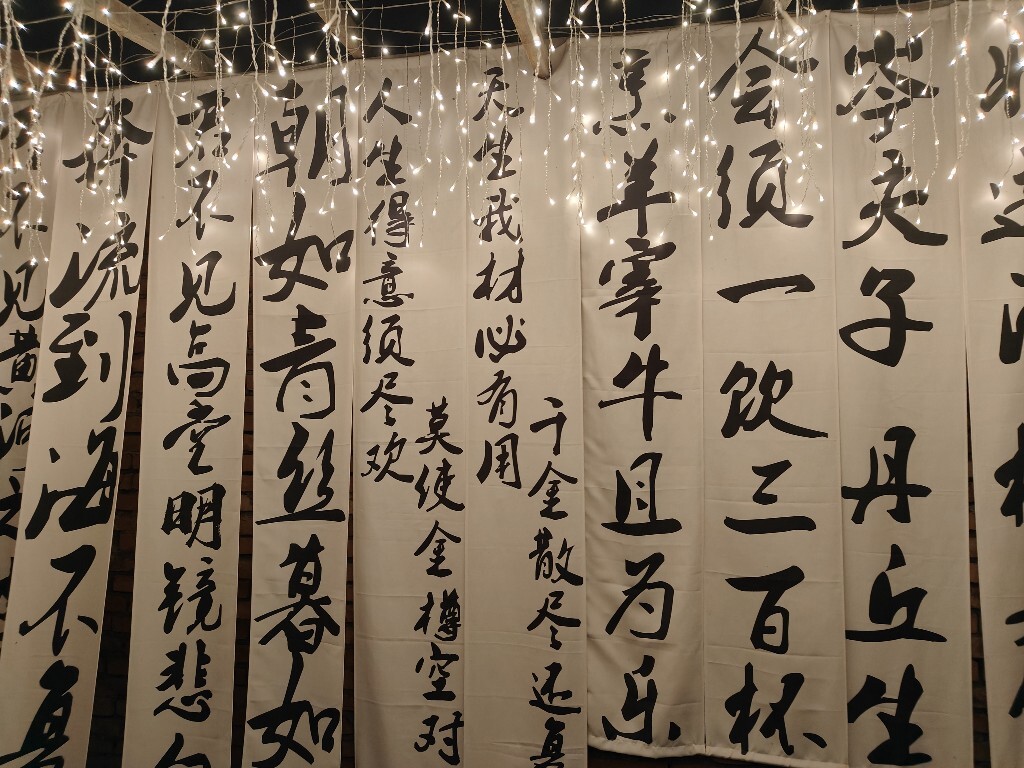 不见黄河之
奔流到海不复
君不见高堂明镜悲白
朝如青丝暮如
人生得意须尽欢
莫使金樽空对
天生我材必有用
千金散尽还复
烹羊宰牛且为乐
会须一饮三百杯
岑夫子丹丘生
将进酒